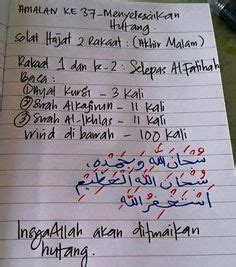 AMALAN KE 37 - Menyelesaikan
Hutang.
Solat Hajat 2 Rakaat : (Akhir Malam)
Rakaat 1 dan ke-2 : Selepas AlFatihah
Baca :
① Ayat Kursi - 3 kali
② Surah AlKafirun - 11 kali
③ Surah Al-Ikhlas - 11 kali
Wirid di bawah - 100 kali
سُبْحَانَ اللهِ وَبِحَمْدِهِ،
سُبْحَانَ اللهِ الْعَظِيْمِ
أَسْتَغْفِرُ اللهَ
InsyaAllah akan ditunaikan
hutang.